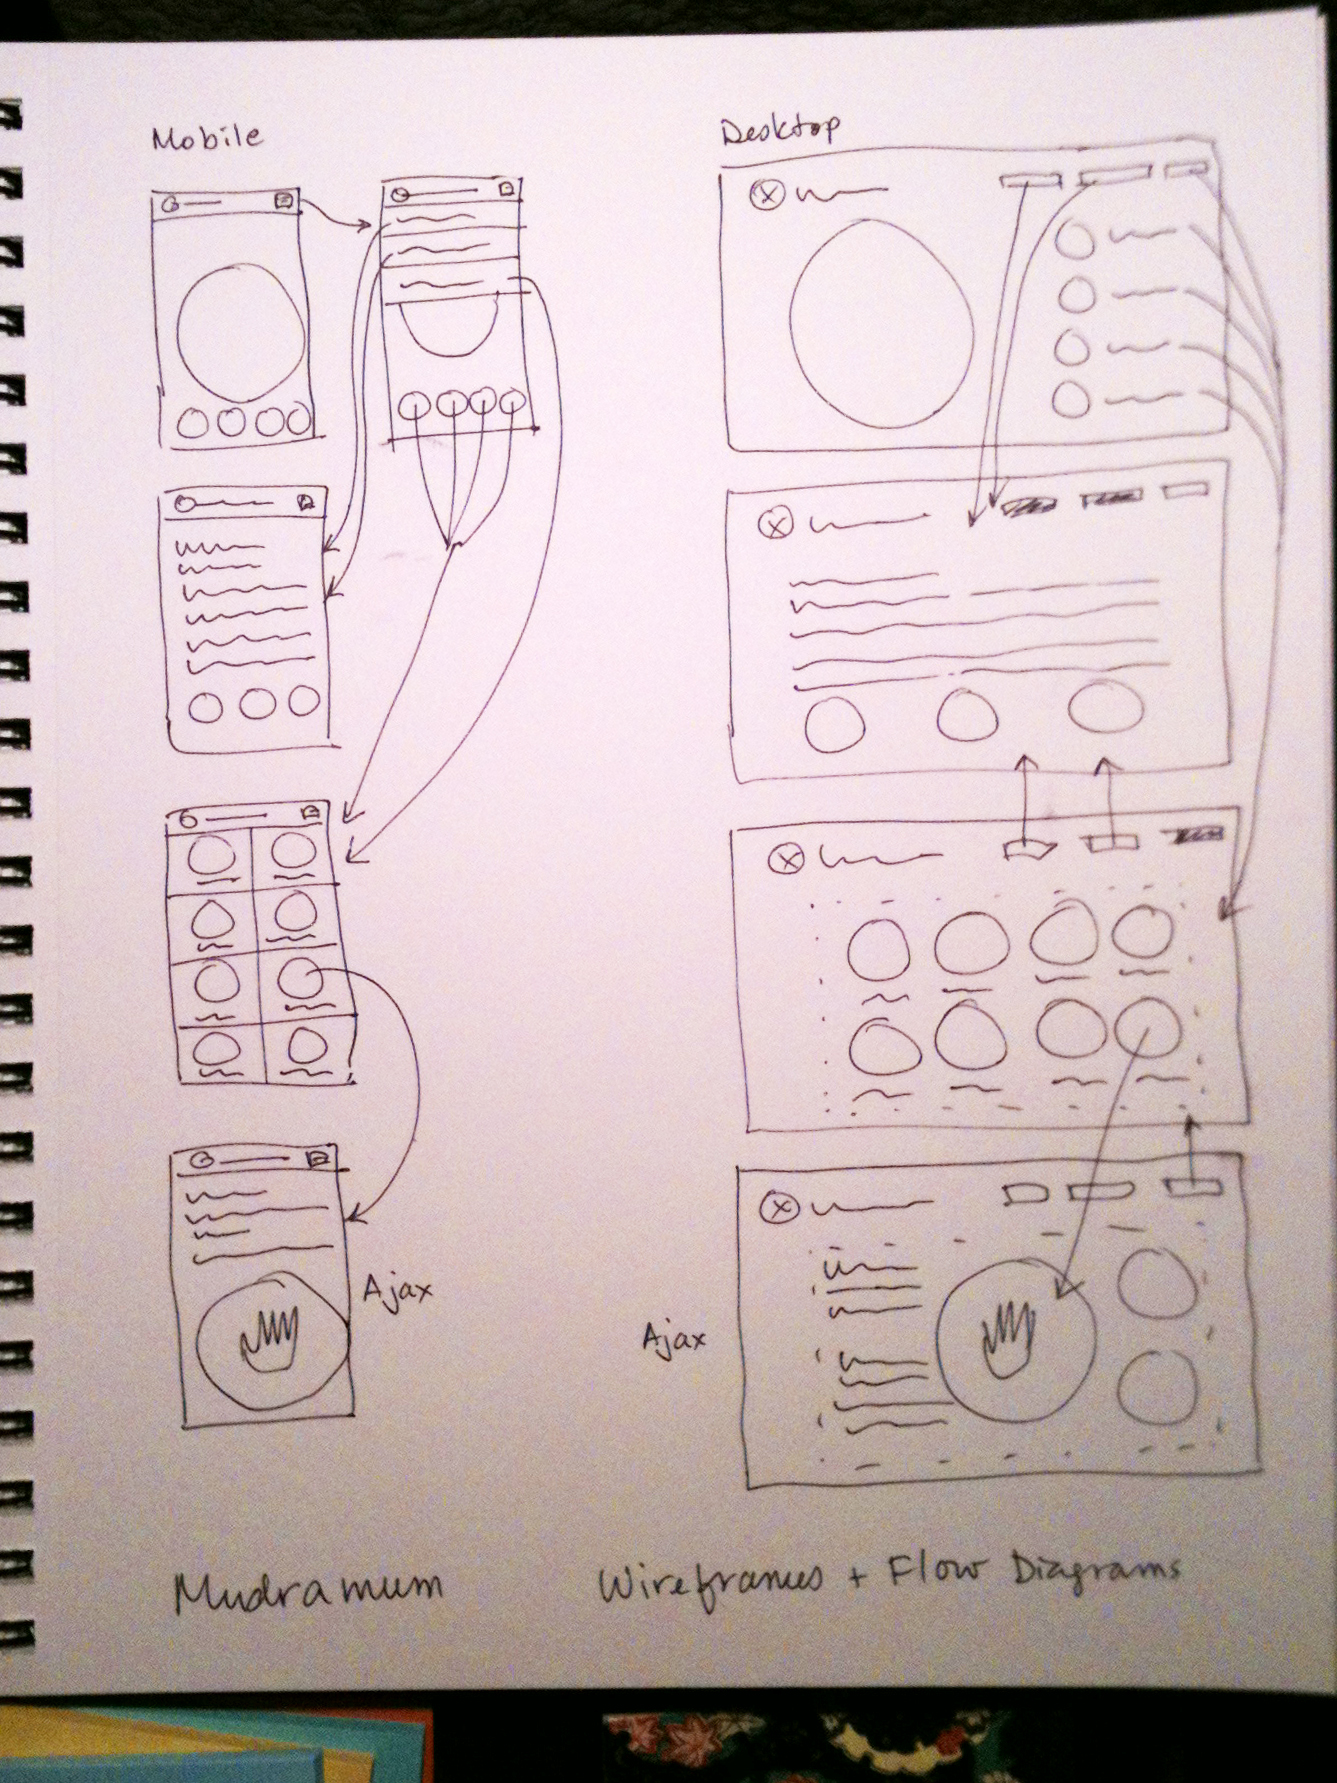 Mobile
Desktop
Ajax
Ajax
Mudramum
Wireframes + Flow Diagrams